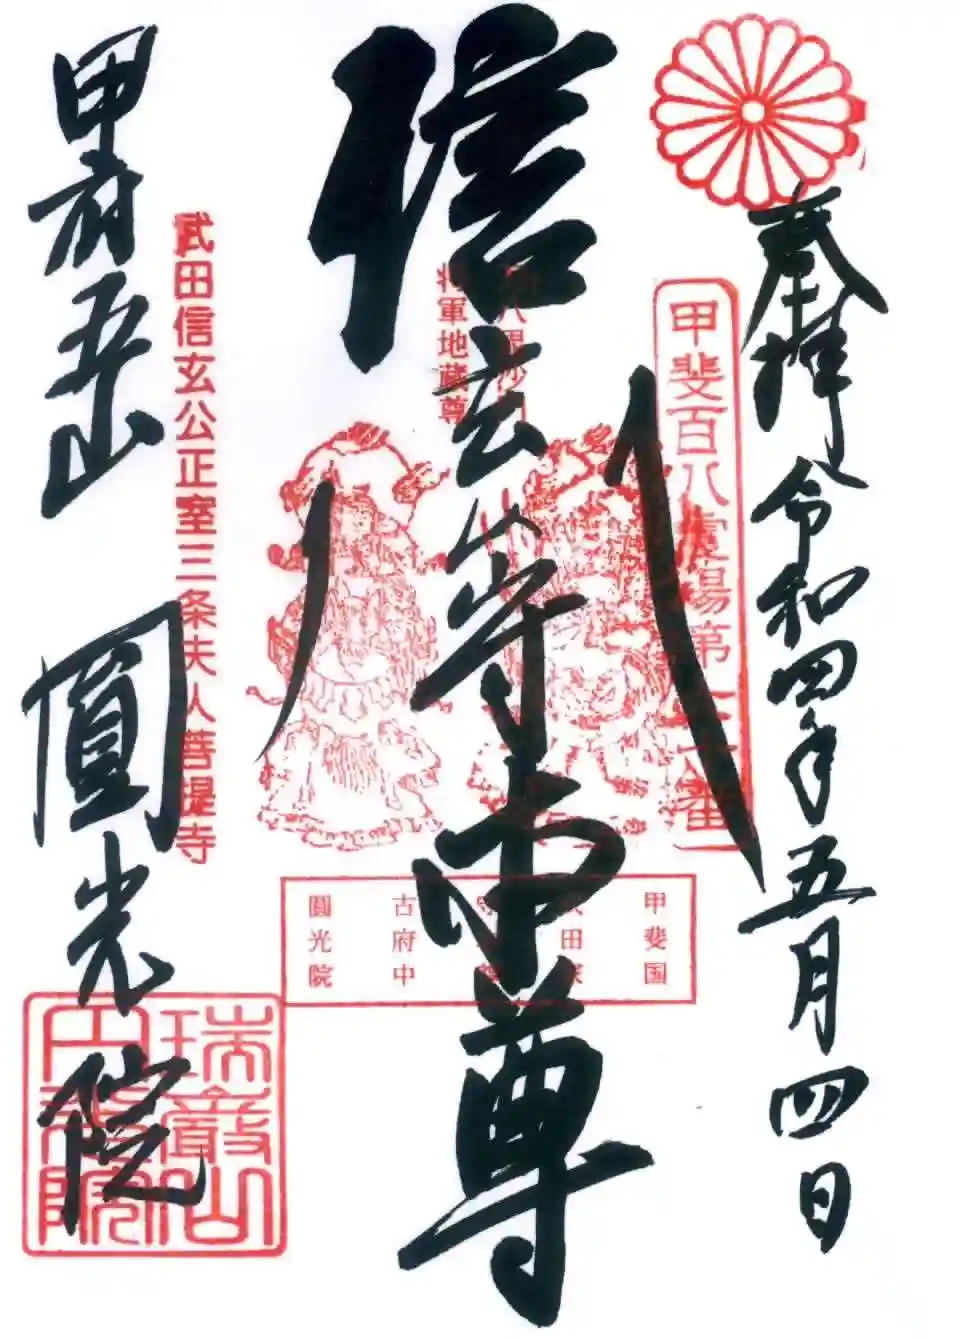 奉拝 令和四年五月四日
甲斐百八霊場第
信玄守本尊
将軍地蔵尊
甲斐国
古府中
圓光院
武田信玄公正室三条夫人菩提寺
甲府五山 圓光院
瑞巌山
円光院